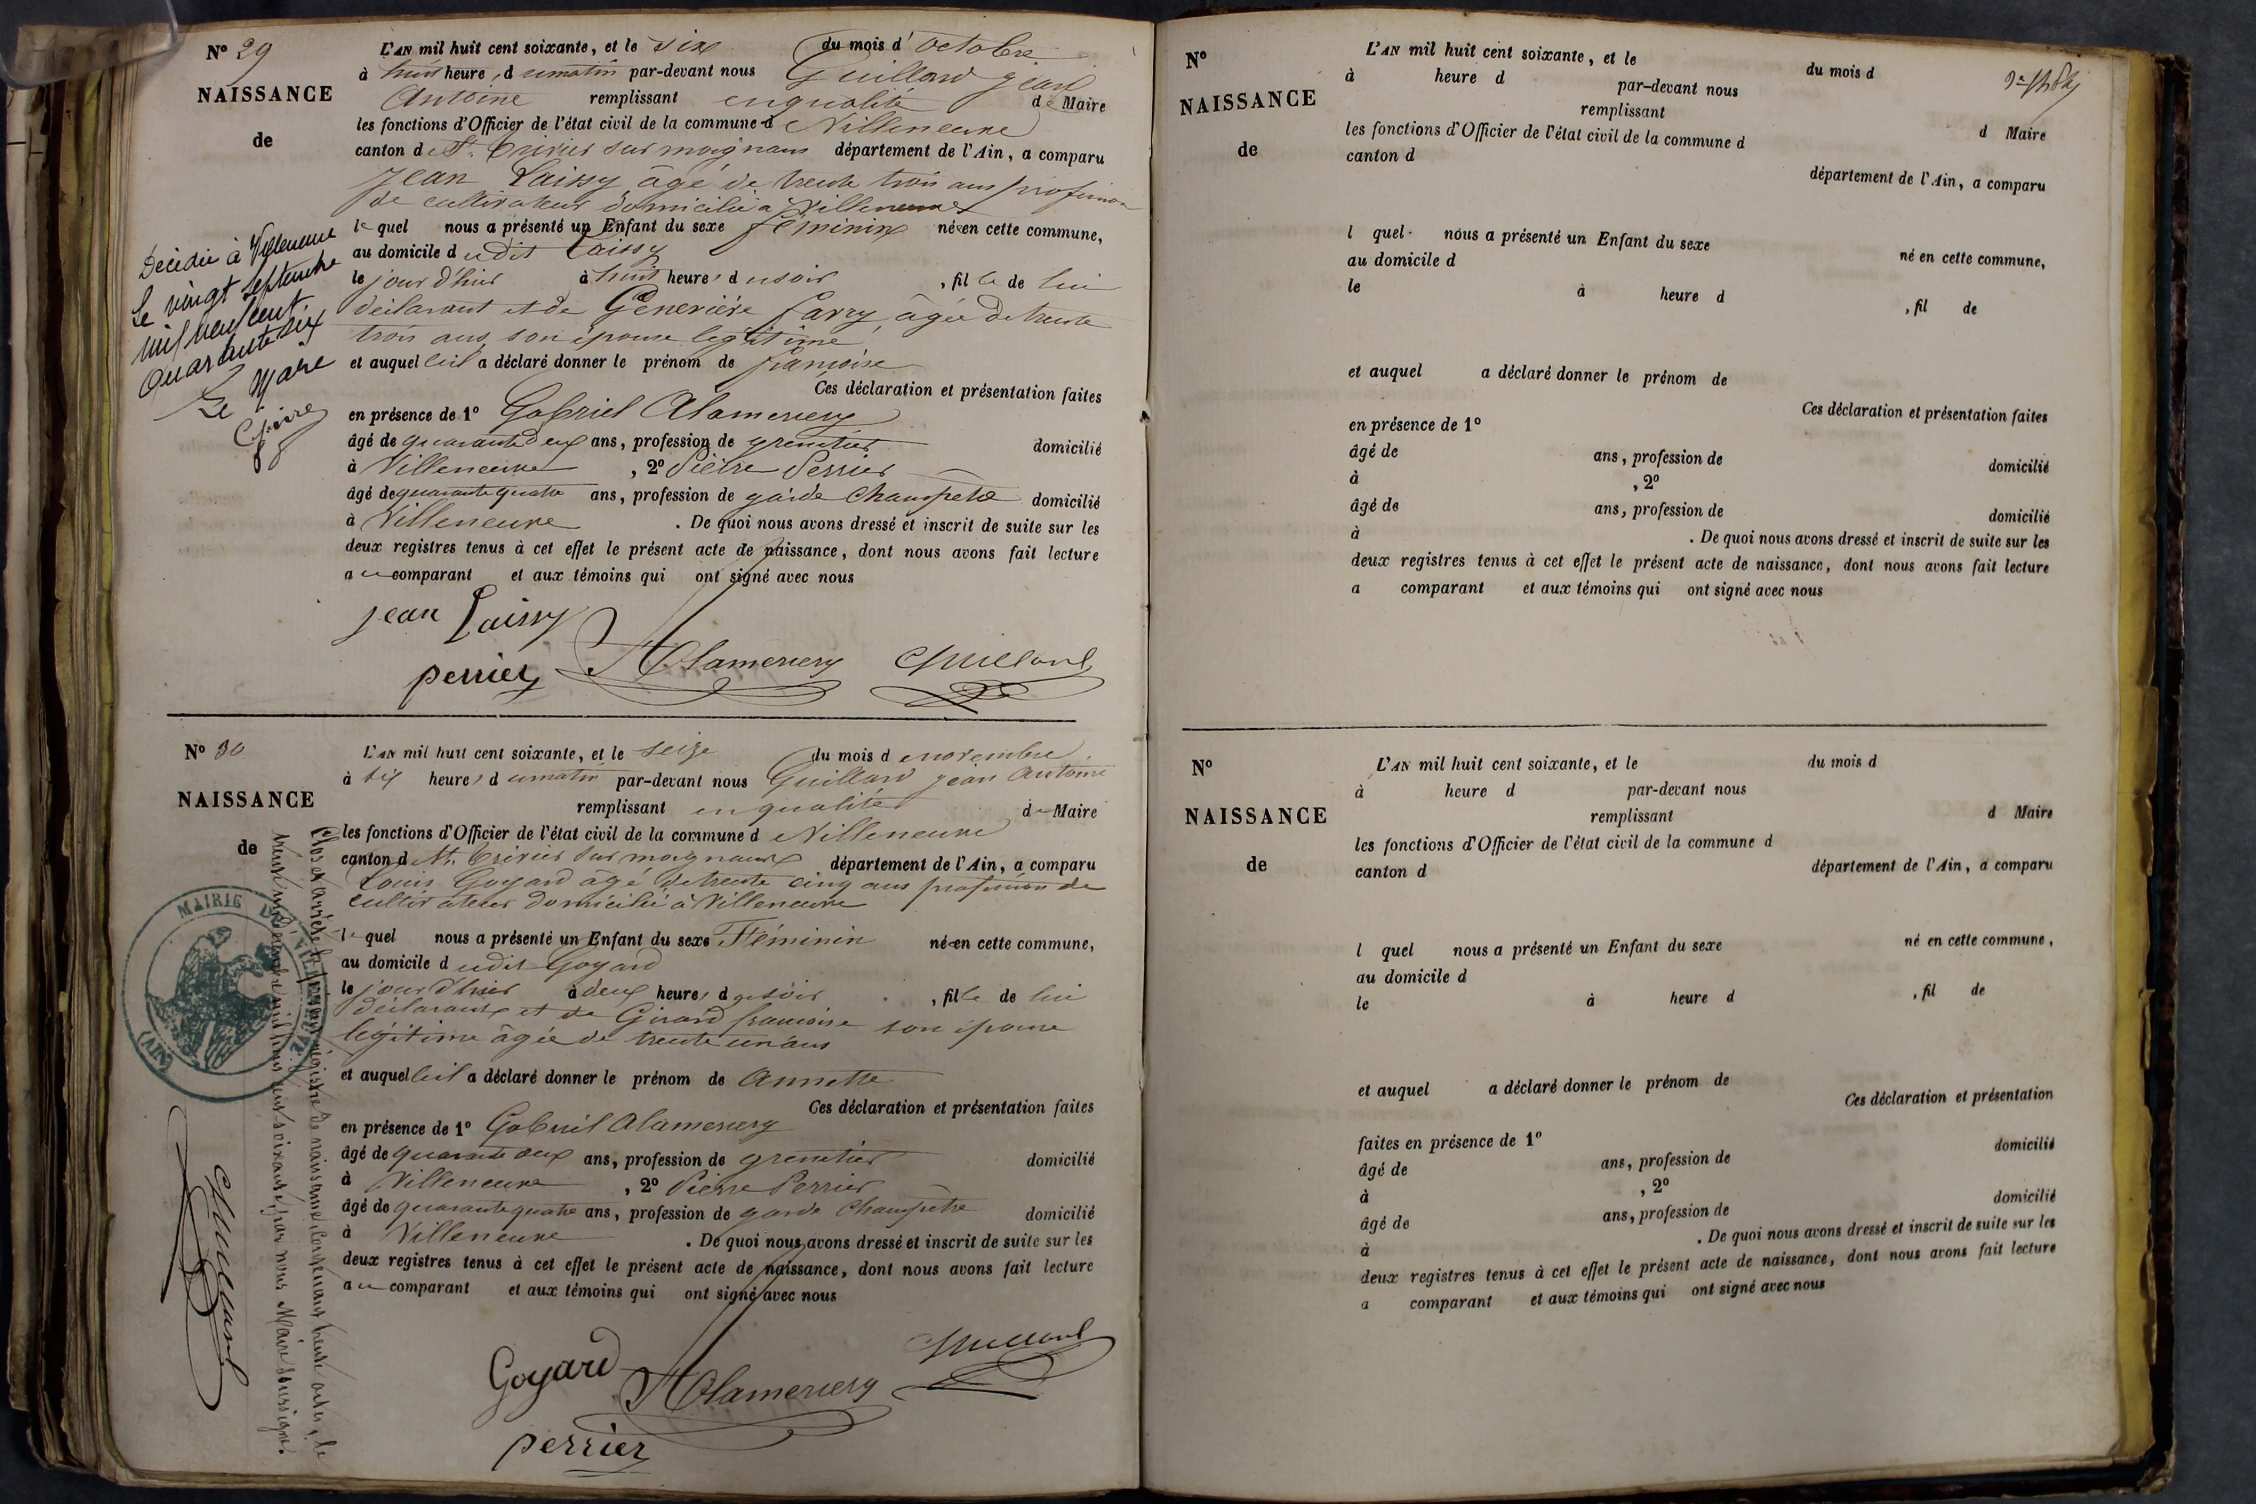 N° 29
NAISSANCE
de
L'AN mil huit cent soixante, et le six du mois d'octobre
à huit heures du matin par-devant nous Guillard jean
Antoine remplissant en qualité de Maire
les fonctions d'Officier de l'état civil de la commune de Villeneuve
canton de St. Trivier sur moignans département de l'Ain, a comparu
Jean Laissy âgé de trente trois ans profession
de cultivateur domicilié à Villeneuve
le quel nous a présenté un Enfant du sexe féminin née en cette commune,
au domicile dudit Laissy
le jour d'hier à huit heures du soir, fille de lui
déclarant et de Geneviève Carry, âgée de trente
trois ans, son épouse légitime
et auquel il a déclaré donner le prénom de francoise
Ces déclaration et présentation faites
en présence de 1° Gabriel Alamercery
âgé de quarante deux ans, profession de grenetier domicilié
à Villeneuve, 2° Pierre Perrier
âgé de quarante quatre ans, profession de garde Champêtre domicilié
à Villeneuve. De quoi nous avons dressé et inscrit de suite sur les
deux registres tenus à cet effet le présent acte de naissance, dont nous avons fait lecture
au comparant et aux témoins qui ont signé avec nous
jean Laissy
perrier Alamercery Guillard
Décédée à Villeneuve
Le vingt septembre
mil neuf cent
quarante six
Le Maire
N° 30
NAISSANCE
de
L'AN mil huit cent soixante, et le seize du mois de novembre
à dix heures du matin par-devant nous Guillard jean Antoine
remplissant en qualité de Maire
les fonctions d'Officier de l'état civil de la commune de Villeneuve
canton de St. Trivier sur moignans département de l'Ain, a comparu
Louis Goyard âgé de trente cinq ans profession de
cultivateur domicilié à Villeneuve
le quel nous a présenté un Enfant du sexe Féminin née en cette commune,
au domicile dudit Goyard
le jour d'hier à deux heures du soir, fille de lui
déclarant et de Girard francoise son épouse
légitime âgée de trente un ans
et auquel il a déclaré donner le prénom de Annette
Ces déclaration et présentation faites
en présence de 1° Gabriel Alamercery
âgé de quarante deux ans, profession de grenetier domicilié
à Villeneuve, 2° Pierre Perrier
âgé de quarante quatre ans, profession de garde Champêtre domicilié
à Villeneuve. De quoi nous avons dressé et inscrit de suite sur les
deux registres tenus à cet effet le présent acte de naissance, dont nous avons fait lecture
au comparant et aux témoins qui ont signé avec nous
Goyard Alamercery Guillard
perrier
Clos et arrêté le présent registre de naissance contenant trente actes, le
trente un décembre mil huit cent soixante, par nous Maire soussigné.
Guillard
MAIRIE DE VILLENEUVE
(AIN)
N°
NAISSANCE
de
L'AN mil huit cent soixante, et le du mois d
à heure d par-devant nous
remplissant d Maire
les fonctions d'Officier de l'état civil de la commune d
canton d département de l'Ain, a comparu
l quel nous a présenté un Enfant du sexe né en cette commune,
au domicile d
le à heure d , fil de
et auquel a déclaré donner le prénom de
Ces déclaration et présentation faites
en présence de 1°
âgé de ans, profession de domicilié
à , 2°
âgé de ans, profession de domicilié
à . De quoi nous avons dressé et inscrit de suite sur les
deux registres tenus à cet effet le présent acte de naissance, dont nous avons fait lecture
a comparant et aux témoins qui ont signé avec nous
N°
NAISSANCE
de
L'AN mil huit cent soixante, et le du mois d
à heure d par-devant nous
remplissant d Maire
les fonctions d'Officier de l'état civil de la commune d
canton d département de l'Ain, a comparu
l quel nous a présenté un Enfant du sexe né en cette commune,
au domicile d
le à heure d , fil de
et auquel a déclaré donner le prénom de
Ces déclaration et présentation
faites en présence de 1° domicilié
âgé de ans, profession de
à , 2° domicilié
âgé de ans, profession de
à . De quoi nous avons dressé et inscrit de suite sur les
deux registres tenus à cet effet le présent acte de naissance, dont nous avons fait lecture
a comparant et aux témoins qui ont signé avec nous